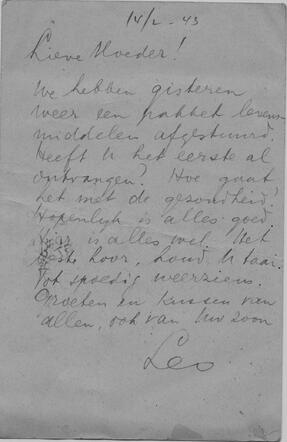 14/2 - 43
Lieve Moeder!
We hebben gisteren
weer een pakket levens
middelen afgestuurd.
Heeft U het eerste al
ontvangen? Hoe gaat
het met de gezondheid?
Hopenlijk is alles goed
Hier is alles wel. Het
beste hoor, houd U taai.
Tot spoedig weerziens.
Groeten en kussen van
allen, ook van Uw zoon
Leo